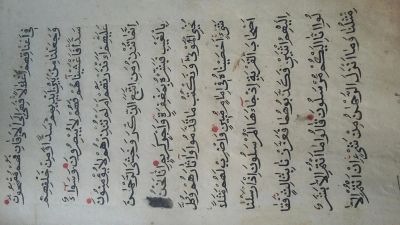 فِي أَعْنَاقِهِمْ أَغْلَالًا فَهِيَ إِلَى الْأَذْقَانِ فَهُمْ مُقْمَحُونَ
وَجَعَلْنَا مِنْ بَيْنِ أَيْدِيهِمْ سَدًّا وَمِنْ خَلْفِهِمْ
سَدًّا فَأَغْشَيْنَاهُمْ فَهُمْ لَا يُبْصِرُونَ وَسَوَاءٌ
عَلَيْهِمْ ءَأَنْذَرْتَهُمْ أَمْ لَمْ تُنْذِرْهُمْ لَا يُؤْمِنُونَ
إِنَّمَا تُنْذِرُ مَنِ اتَّبَعَ الذِّكْرَ وَخَشِيَ الرَّحْمَنَ
بِالْغَيْبِ فَبَشِّرْهُ بِمَغْفِرَةٍ وَأَجْرٍ كَرِيمٍ إِنَّا نَحْنُ
نُحْيِي الْمَوْتَى وَنَكْتُبُ مَا قَدَّمُوا وَآثَارَهُمْ وَكُلَّ
شَيْءٍ أَحْصَيْنَاهُ فِي إِمَامٍ مُبِينٍ وَاضْرِبْ لَهُمْ مَثَلًا
أَصْحَابَ الْقَرْيَةِ إِذْ جَاءَهَا الْمُرْسَلُونَ إِذْ أَرْسَلْنَا
إِلَيْهِمُ اثْنَيْنِ فَكَذَّبُوهُمَا فَعَزَّزْنَا بِثَالِثٍ فَقَا
لُوا إِنَّا إِلَيْكُمْ مُرْسَلُونَ قَالُوا مَا أَنْتُمْ إِلَّا بَشَرٌ
مِثْلُنَا وَمَا أَنْزَلَ الرَّحْمَنُ مِنْ شَيْءٍ إِنْ أَنْتُمْ إِلَّا